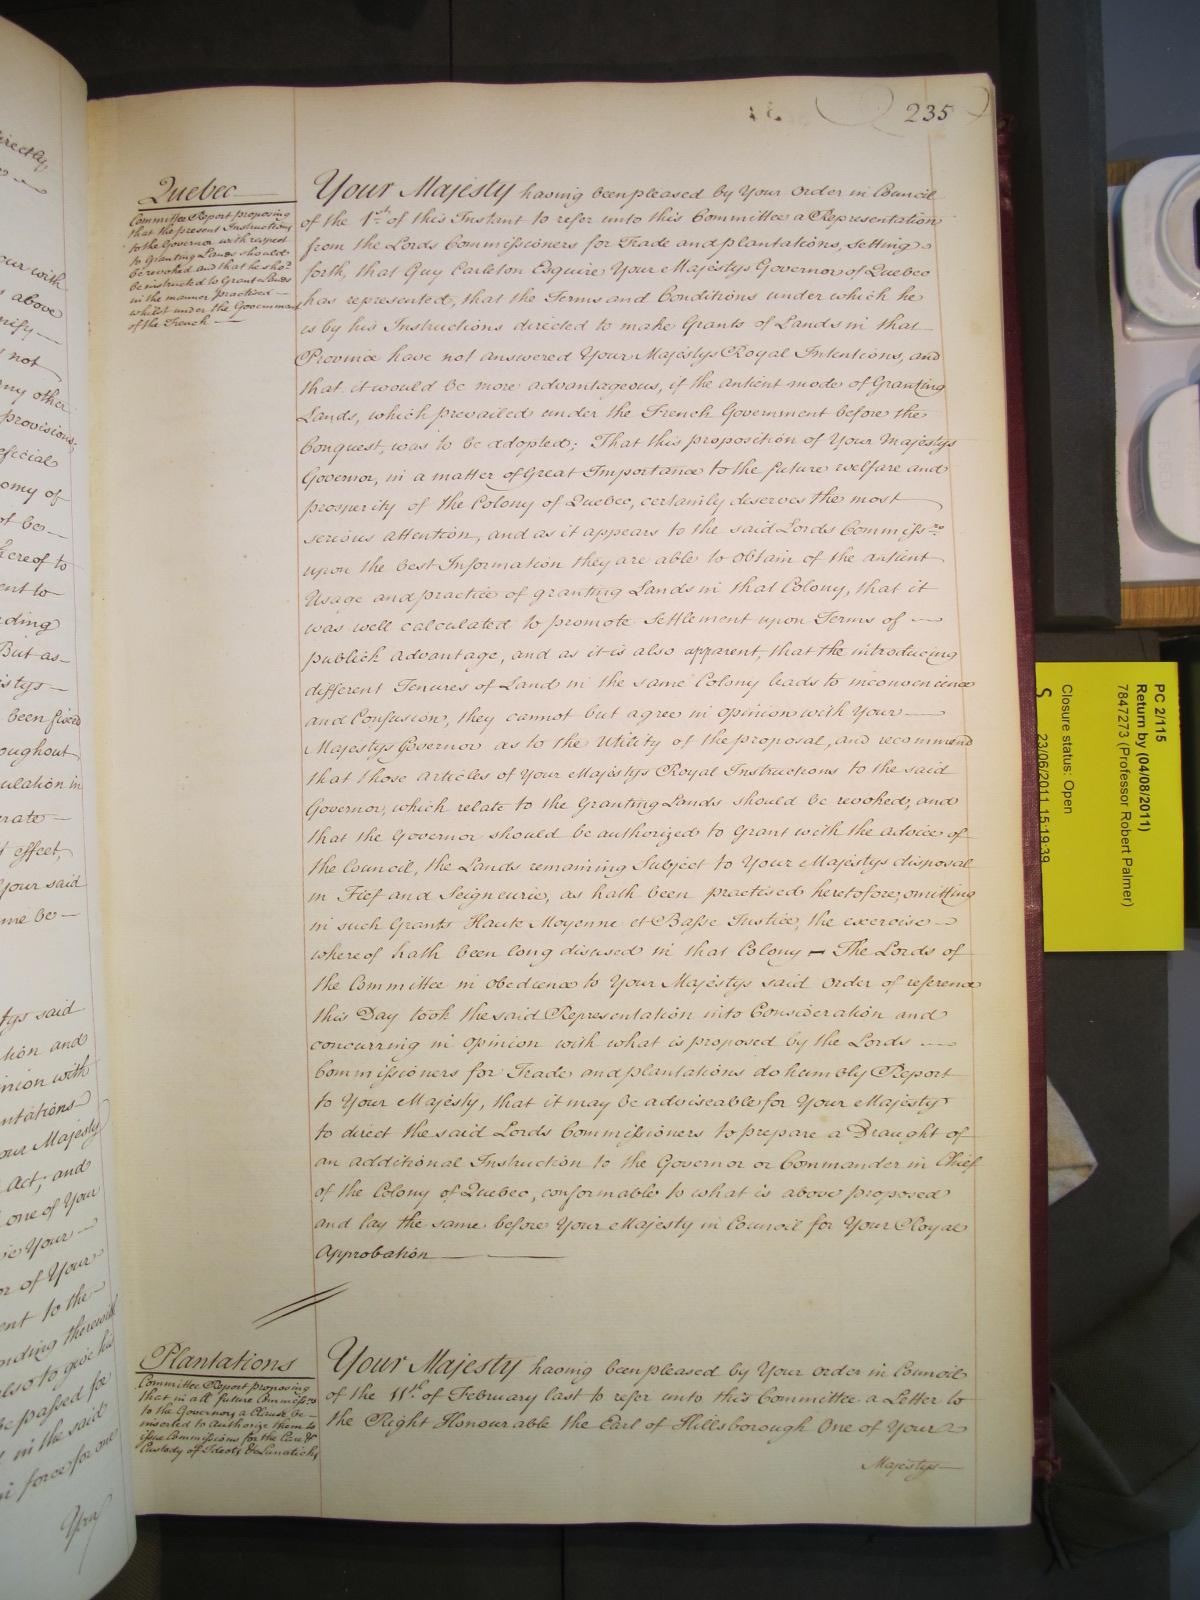 235
Quebec
Committee Report proposing
that the present Instructions
to the Governor with respect
to Granting Lands should
be revoked and that he sho.d
be instructed to Grant Lands
in the manner practised —
whilst under the Government
of the French —
Your Majesty having been pleased by Your Order in Council
of the 1st of this Instant to refer unto this Committee a Representation
from the Lords Commissioners for Trade and plantations, setting
forth, that Guy Carleton Esquire Your Majestys Governor of Quebec
has represented, that the Terms and Conditions under which he
is by his Instructions directed to make Grants of Lands in that
Province have not answered Your Majestys Royal Intentions, and
that it would be more advantageous, if the antient mode of Granting
Lands, which prevailed under the French Government before the
Conquest, was to be adopted; That this proposition of Your Majestys
Governor, in a matter of Great Importance to the future welfare and
prosperity of the Colony of Quebec, certainly deserves the most
serious attention, and as it appears to the said Lords Commiss.rs
upon the best Information they are able to Obtain of the antient
Usage and practice of granting Lands in that Colony, that it
was well calculated to promote Settlement upon Terms of —
publick Advantage, and as it is also apparent, that the introducing
different Tenures of Land in the same Colony leads to inconvenience
and Confusion, they cannot but agree in opinion with Your —
Majestys Governor as to the Utility of the proposal, and recommend
that those Articles of Your Majestys Royal Instructions to the said
Governor, which relate to the Granting Lands should be revoked, and
that the Governor should be authorized to Grant with the advice of
the Council, the Lands remaining Subject to Your Majestys disposal
in Fief and Seigneurie, as hath been practised heretofore, omitting
in such Grants Haute Moyenne et Basse Justice, the exercise —
whereof hath been long disused in that Colony — The Lords of
the Committee in obedience to Your Majestys said Order of reference
this Day took the said Representation into Consideration and
concurring in Opinion with what is proposed by the Lords —
Commissioners for Trade and plantations do humbly Report
to Your Majesty, that it may be adviseable for Your Majesty
to direct the said Lords Commissioners to prepare a Draught of
an additional Instruction to the Governor or Commander in Chief
of the Colony of Quebec, conformable to what is above proposed
and lay the same before Your Majesty in Council for Your Royal
Approbation —
Plantations
Committee Report proposing
that in all future Commiss.ns
to the Governors a Clause be —
inserted to Authorize them to
issue Commissions for the Care &
Custody of Ideots & Lunaticks
Your Majesty having been pleased by Your Order in Council
of the 11th of February last to refer unto this Committee a Letter to
the Right Honourable the Earl of Hillsborough One of Your
Majestys —
irectly
our with
above
nify —
not
my other
provisions
eficial
omy of
ot be —
hereof to
ent to
ding
But as —
istys —
been fixed
oughout
ulation in
rate —
effect,
Your said
me be —
tys said
tion and
inion with
ntations
our Majesty
Act, and
one of Your
or of Your
ent to the
nding therewith
also to give his
be passed for
in the said
in force for one
PC 2/115
Return by (04/08/2011)
7847273 (Professor Robert Palmer)
Closure status: Open
S
23/06/2011 15:19:39